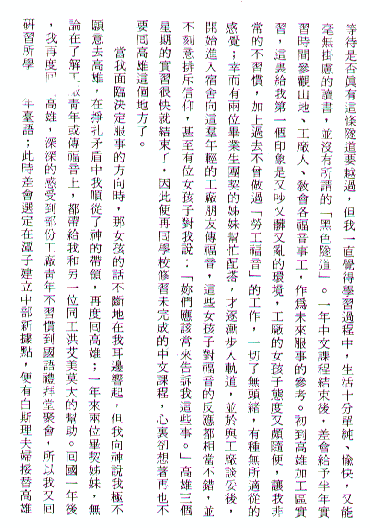 等待是否真有這條隧道要越過，但我一直覺得學習過程中，生活十分單純、愉快，又能
毫無掛慮的讀書，並沒有所謂的「黑色隧道」。一年中文課程結束後，差會給予半年實
習時間參觀山地、工廠人、教會各福音事工，作爲未來服事的參考。初到高雄加工區實
習，這裏給我第一個印象是又吵又髒又亂的環境，工廠的女孩子態度又頗隨便，讓我非
常的不習慣，加上過去不曾做過「勞工福音」的工作，一切了無頭緒，有種無所適從的
感覺；幸而有兩位畢業生團契的姊妹幫忙配搭，才逐漸步入軌道，並於與工廠談妥後，
開始進入宿舍向這羣年輕的工廠朋友傳福音，這些女孩子對福音的反應都相當不錯，並
不刻意排斥信仰，甚至有位女孩子對我說：「妳們應該常來告訴我這些事。」高雄三個
星期的實習很快就結束了，因此便再回學校修習未完成的中文課程，心裏卻想著再也不
要回高雄這個地方了。
當我面臨決定服事的方向時，那女孩的話不斷地在我耳邊響起，但我向神說我極不
願意去高雄，在掙扎矛盾中我順從了神的帶領，再度回高雄；一年來兩位畢契姊妹，無
論在了解工廠青年或傳福音上，都帶給我和另一位同工洪艾美莫大的幫助。回國一年後
，我再度回高雄，深深的感受到部份工廠青年不習慣到國語禮拜堂聚會，所以我又回
研習所學 年臺語；此時差會選定在潭子建立中部新據點，便有白斯理夫婦接替高雄